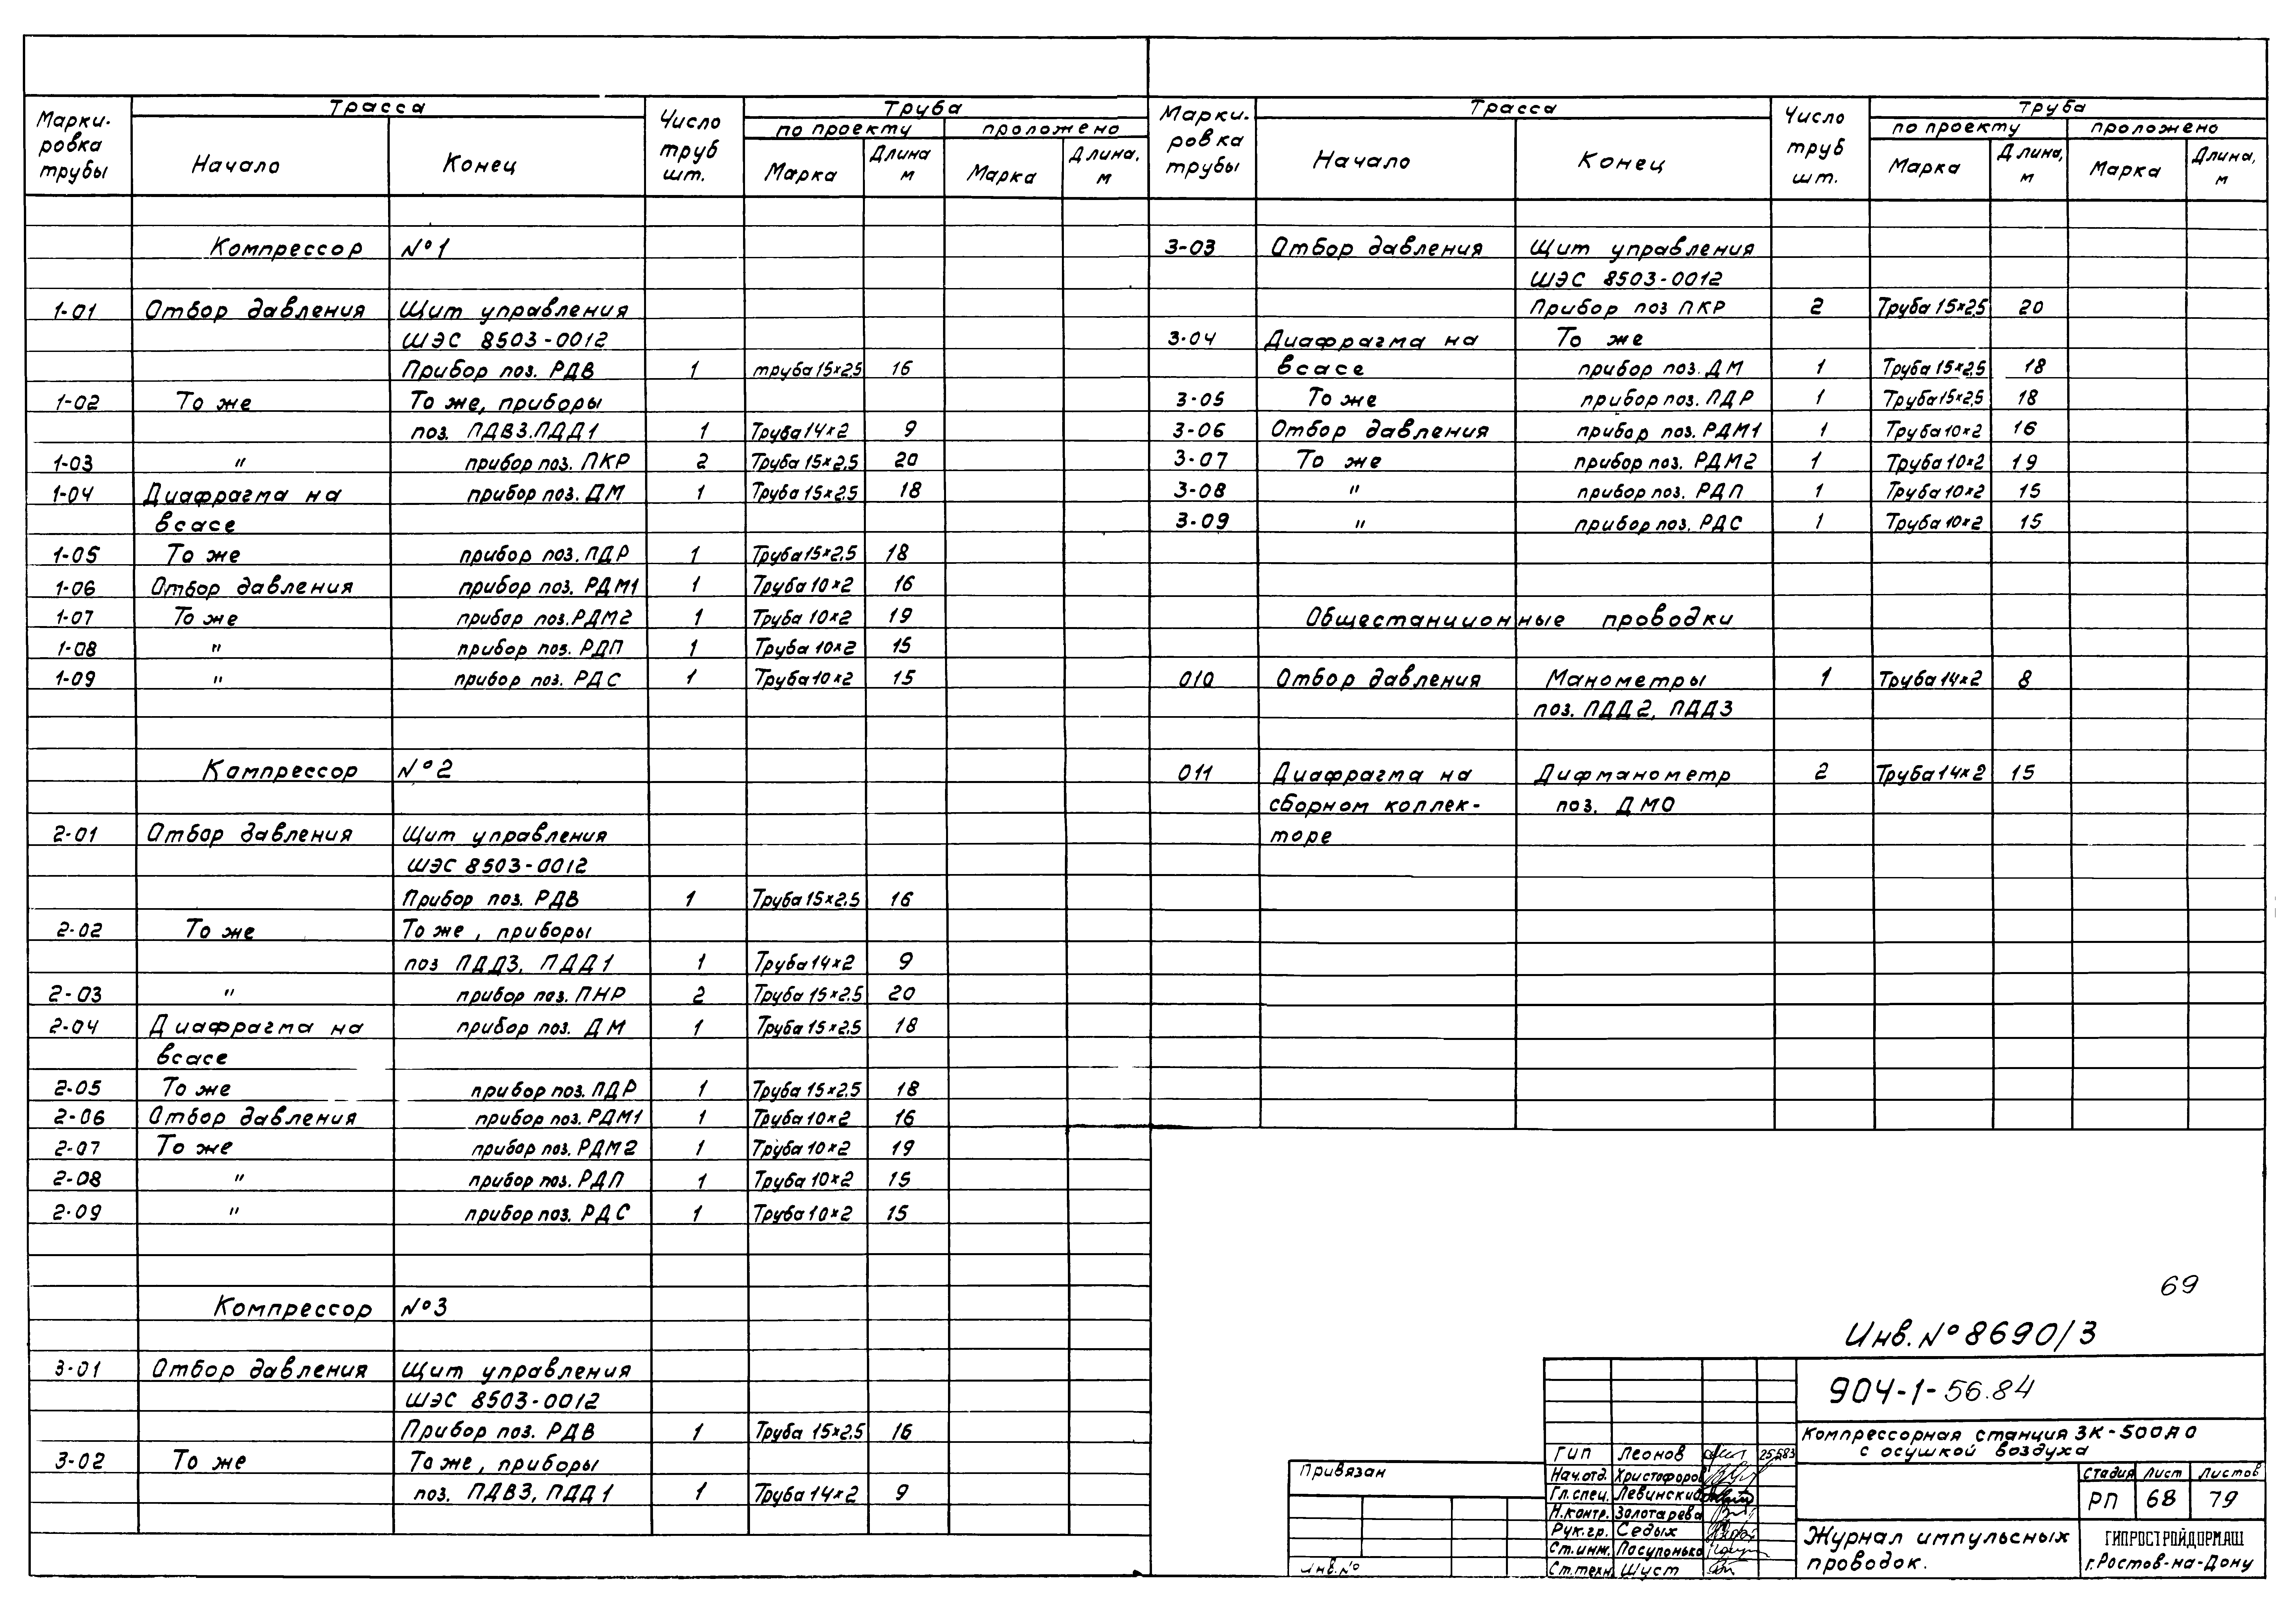 Марки- Трасса Число Труба
ровка труб по проекту проложено
трубы Начало Конец шт. Марка Длина м Марка Длина, м
Компрессор №1
1-01 Отбор давления Щит управления
ШЭС 8503-0012
Прибор поз. РДВ 1 труба 15×2,5 16
1-02 То же То же, приборы
поз. ПДВ3.ПДД1 1 Труба 14×2 9
1-03 " прибор поз. ПКР 2 Труба 15×2,5 20
1-04 Диафрагма на прибор поз. ДМ 1 Труба 15×2,5 18
всасе
1-05 То же прибор поз. ПДР 1 Труба 15×2,5 18
1-06 Отбор давления прибор поз. РДМ1 1 Труба 10×2 16
1-07 То же прибор поз. РДМ2 1 Труба 10×2 19
1-08 " прибор поз. РДП 1 Труба 10×2 15
1-09 " прибор поз. РДС 1 Труба 10×2 15
Компрессор №2
2-01 Отбор давления Щит управления
ШЭС 8503-0012
Прибор поз. РДВ 1 Труба 15×2,5 16
2-02 То же То же, приборы
поз ПДД3, ПДД1 1 Труба 14×2 9
2-03 " прибор поз. ПНР 2 Труба 15×2,5 20
2-04 Диафрагма на прибор поз. ДМ 1 Труба 15×2,5 18
всасе
2-05 То же прибор поз. ПДР 1 Труба 15×2,5 18
2-06 Отбор давления прибор поз. РДМ1 1 Труба 10×2 16
2-07 То же прибор поз. РДМ2 1 Труба 10×2 19
2-08 " прибор поз. РДП 1 Труба 10×2 15
2-09 " прибор поз. РДС 1 Труба 10×2 15
Компрессор №3
3-01 Отбор давления Щит управления
ШЭС 8503-0012
Прибор поз. РДВ 1 Труба 15×2,5 16
3-02 То же То же, приборы
поз. ПДВ3, ПДД1 1 Труба 14×2 9
Марки- Трасса Число Труба
ровка труб по проекту проложено
трубы Начало Конец шт. Марка Длина, м Марка Длина, м
3-03 Отбор давления Щит управления
ШЭС 8503-0012
Прибор поз ПКР 2 Труба 15×2,5 20
3-04 Диафрагма на То же
всасе прибор поз. ДМ 1 Труба 15×2,5 18
3-05 То же прибор поз. ПДР 1 Труба 15×2,5 18
3-06 Отбор давления прибор поз. РДМ1 1 Труба 10×2 16
3-07 То же прибор поз. РДМ2 1 Труба 10×2 19
3-08 " прибор поз. РДП 1 Труба 10×2 15
3-09 " прибор поз. РДС 1 Труба 10×2 15
Общестанционные проводки
010 Отбор давления Манометры 1 Труба 14×2 8
поз. ПДД2, ПДД3
011 Диафрагма на Дифманометр 2 Труба 14×2 15
сборном коллек- поз. ДМО
торе
69
Инв. № 8690/3
904-1-56.84
Компрессорная станция 3К-500А0
с осушкой воздуха
ГИП Леонов 25.5.83
Нач.отд. Христофоров
Гл.спец. Левинский
Н.контр. Золотарева
Рук.гр. Седых
Ст.инж. Пасулонько
Ст.техн. Шуст
Привязан
Инв.№
Стадия Лист Листов
РП 68 79
Журнал импульсных
проводок.
ГИПРОСТРОЙДОРМАШ
г.Ростов-на-Дону